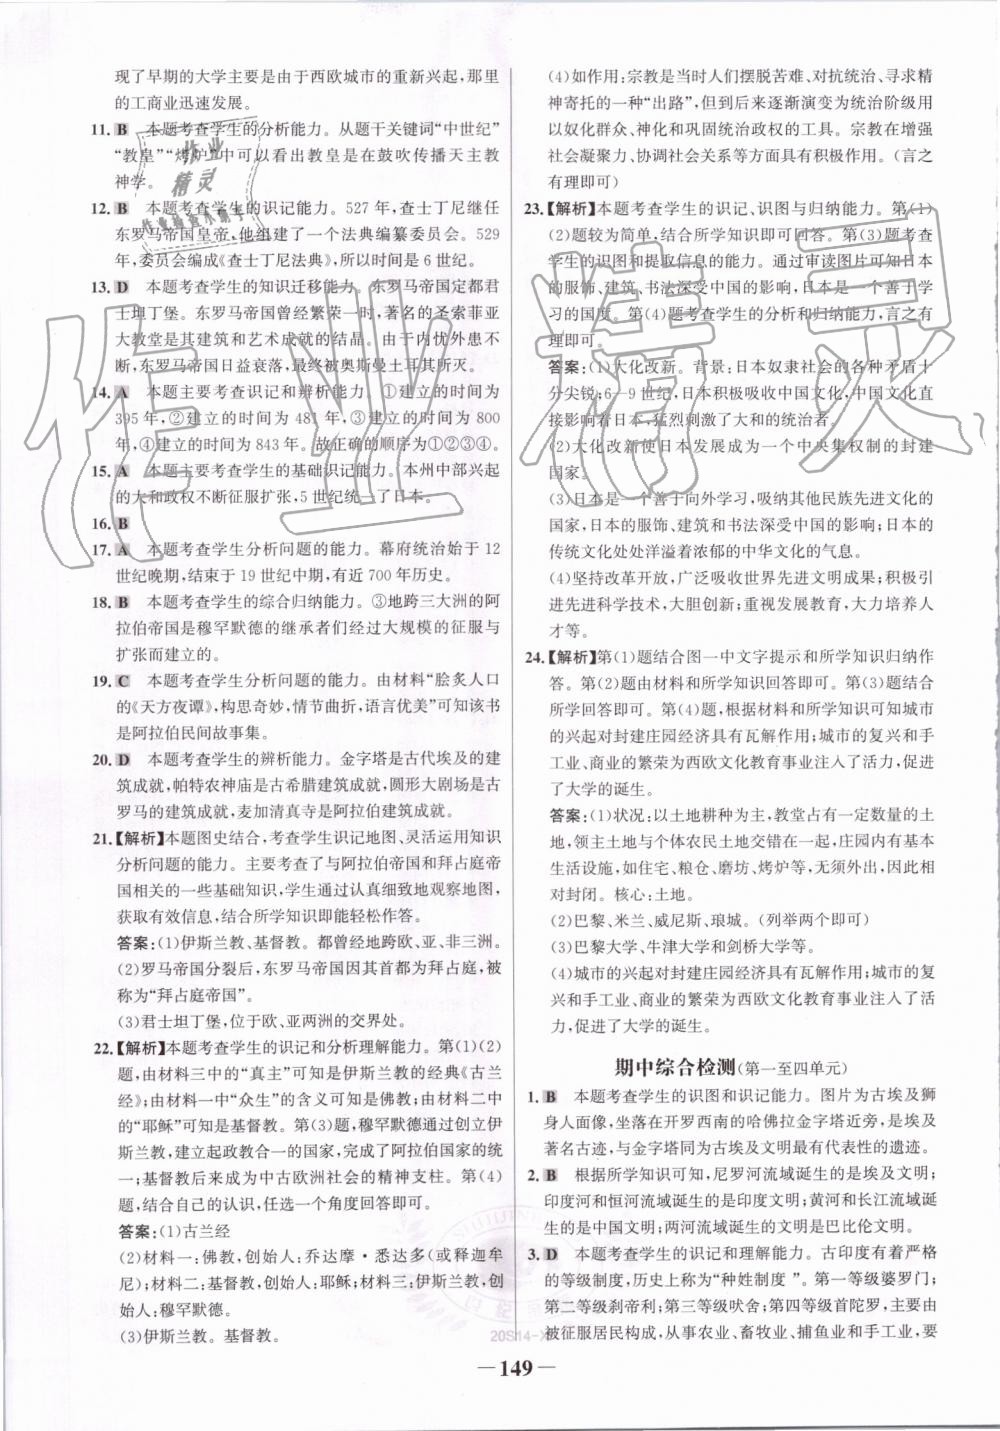 现了早期的大学主要是由于西欧城市的重新兴起,那里
的工商业迅速发展。
11. B 本题考查学生的分析能力。从题干关键词“中世纪”
“教皇”“烤炉”中可以看出教皇是在鼓吹传播天主教
神学。
12. B 本题考查学生的识记能力。527 年,查士丁尼继任
东罗马帝国皇帝,他组建了一个法典编纂委员会。529
年,委员会编成《查士丁尼法典》,所以时间是 6 世纪。
13. D 本题考查学生的知识迁移能力。东罗马帝国定都君
士坦丁堡。东罗马帝国曾经繁荣一时,著名的圣索菲亚
大教堂是其建筑和艺术成就的结晶。由于内忧外患不
断,东罗马帝国日益衰落,最终被奥斯曼土耳其所灭。
14. A 本题主要考查识记和辨析能力。①建立的时间为
395 年,②建立的时间为 481 年,③建立的时间为 800
年,④建立的时间为 843 年。故正确的顺序为①②③④。
15. A 本题主要考查学生的基础识记能力。本州中部兴起
的大和政权不断征服扩张,5 世纪统一了日本。
16. B
17. A 本题考查学生分析问题的能力。幕府统治始于 12
世纪晚期,结束于 19 世纪中期,有近 700 年历史。
18. B 本题考查学生的综合归纳能力。③地跨三大洲的阿
拉伯帝国是穆罕默德的继承者们经过大规模的征服与
扩张而建立的。
19. C 本题考查学生分析问题的能力。由材料“脍炙人口
的《天方夜谭》,构思奇妙,情节曲折,语言优美”可知该书
是阿拉伯民间故事集。
20. D 本题考查学生的辨析能力。金字塔是古代埃及的建
筑成就,帕特农神庙是古希腊建筑成就,圆形大剧场是古
罗马的建筑成就,麦加清真寺是阿拉伯建筑成就。
21.【解析】本题图史结合,考查学生识记地图、灵活运用知识
分析问题的能力。主要考查了与阿拉伯帝国和拜占庭帝
国相关的一些基础知识,学生通过认真细致地观察地图,
获取有效信息,结合所学知识即能轻松作答。
答案:(1)伊斯兰教、基督教。都曾经地跨欧、亚、非三洲。
(2)罗马帝国分裂后,东罗马帝国因其首都为拜占庭,被
称为“拜占庭帝国”。
(3)君士坦丁堡,位于欧、亚两洲的交界处。
22.【解析】本题考查学生的识记和分析理解能力。第(1)(2)
题,由材料三中的“真主”可知是伊斯兰教的经典《古兰
经》;由材料一中“众生”的含义可知是佛教;由材料二中
的“耶稣”可知是基督教。第(3)题,穆罕默德通过创立伊
斯兰教,建立起政教合一的国家,完成了阿拉伯国家的统
一;基督教逐渐发展成为中古欧洲社会的精神支柱。第(4)
题,结合自己的认识,任选一个角度回答即可。
答案:(1)古兰经
(2)材料一:佛教,创始人:乔达摩·悉达多(或释迦牟
尼);材料二:基督教,创始人:耶稣;材料三:伊斯兰教,创
始人:穆罕默德。
(3)伊斯兰教。基督教。
(4)如作用:宗教是当时人们摆脱苦难、对抗统治、寻求精
神寄托的一种“出路”,但后来逐渐演变为统治阶级用
以奴化群众、神化和巩固统治政权的工具。宗教在增强
社会凝聚力、协调社会关系等方面具有积极作用。(言之
有理即可)
23.【解析】本题考查学生的识记、识图与归纳能力。第(1)
(2)题较为简单,结合所学知识即可回答。第(3)题考查
学生的识图和提取信息的能力。通过审读图片可知日本
的服饰、建筑、书法深受中国的影响,日本是一个善于学
习的国度。第(4)题考查学生的分析和归纳能力,言之有
理即可。
答案:(1)大化改新。背景:日本奴隶社会的各种矛盾十
分尖锐;6—9 世纪,日本积极吸收中国文化,中国文化直
接影响着日本,猛烈刺激了大和的统治者。
(2)大化改新使日本发展成为一个中央集权制的封建
国家。
(3)日本是一个善于向外学习,吸纳其他民族先进文化的
国家,日本的服饰、建筑和书法深受中国的影响;日本的
传统文化处处洋溢着浓郁的中华文化的气息。
(4)坚持改革开放,广泛吸收世界先进文明成果;积极引
进先进科学技术,大胆创新;重视发展教育,大力培养人
才等。
24.【解析】第(1)题结合图一中文字提示和所学知识归纳作
答。第(2)题由材料和所学知识回答即可。第(3)题结合
所学回答即可。第(4)题,根据材料和所学知识可知城市
的兴起对封建庄园经济具有瓦解作用,城市的复兴和手
工业、商业的繁荣为西欧文化教育事业注入了活力,促进
了大学的诞生。
答案:(1)状况:以土地耕种为主,教堂占有一定数量的土
地,领主土地与个体农民土地交错在一起,庄园内有基本
生活设施,如住宅、粮仓、磨坊、烤炉等,无须外出,因此相
对封闭。核心:土地。
(2)巴黎、米兰、威尼斯、琅城。(列举两个即可)
(3)巴黎大学、牛津大学和剑桥大学等。
(4)城市的兴起对封建庄园经济具有瓦解作用;城市的复
兴和手工业、商业的繁荣为西欧文化教育事业注入了活
力,促进了大学的诞生。
期中综合检测(第一至四单元)
1. B 本题考查学生的识图和识记能力。图片为古埃及狮
身人面像,坐落在开罗西南的哈佛拉金字塔近旁,是埃及
著名古迹,与金字塔同为古埃及文明最有代表性的遗迹。
2. B 根据所学知识可知,尼罗河流域诞生的是埃及文明;
印度河和恒河流域诞生的是印度文明;黄河和长江流域诞
生的是中国文明;两河流域诞生的是巴比伦文明。
3. D 本题考查学生的识记和理解能力。古印度有着严格
的等级制度,历史上称为“种姓制度”。第一等级婆罗门;
第二等级刹帝利;第三等级吠舍;第四等级首陀罗,主要由
被征服居民构成,从事农业、畜牧业、捕鱼业和手工业,要
— 149 —
作业精灵